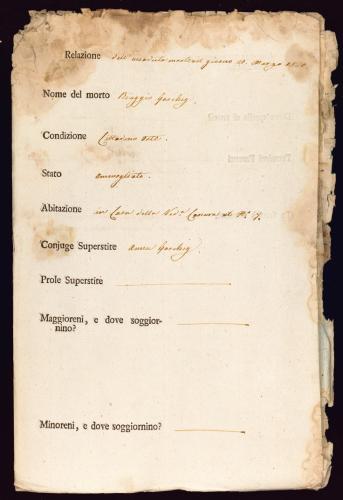 Relazione dell' accaduta morte il giorno 21. Marzo
Nome del morto Biaggio Gaschg.
Condizione Cittadino Oste.
Stato ammogliato.
Abitazione in Casa della Ved.ª al N.º 7.
Conjuge Superstite Anna Gaschg
Prole Superstite
Maggioreni, e dove soggior-
nino?
Minoreni, e dove soggiornino?